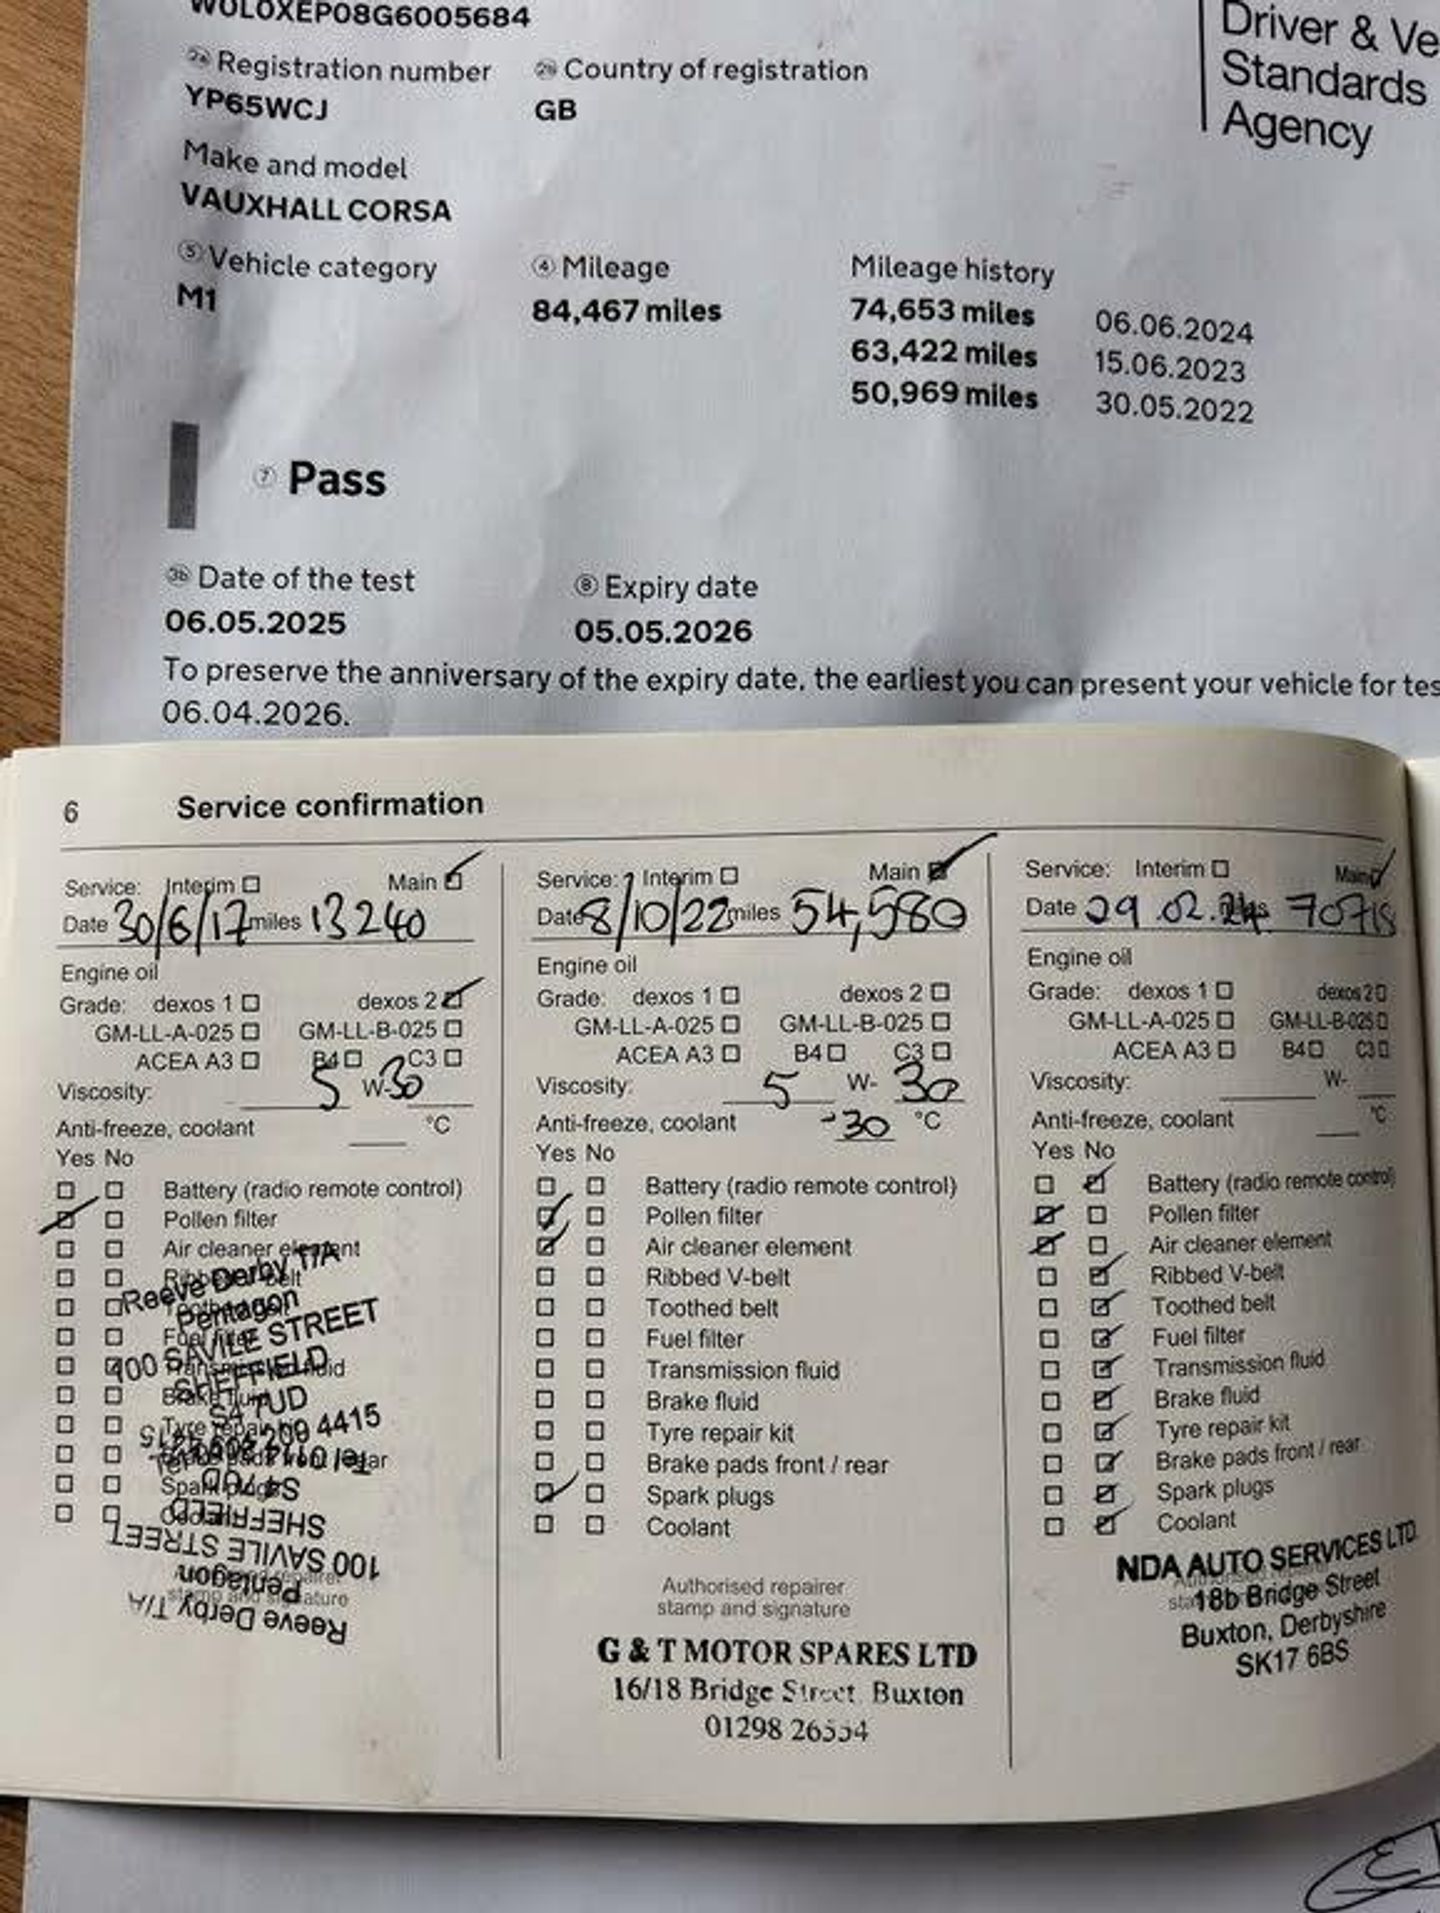 W0L0XEP08G6005684
Driver & Ve
Standards
Agency
2a Registration number
2b Country of registration
YP65WCJ
GB
Make and model
VAUXHALL CORSA
5 Vehicle category
4 Mileage
Mileage history
M1
84,467 miles
74,653 miles 06.06.2024
63,422 miles 15.06.2023
50,969 miles 30.05.2022
7 Pass
3b Date of the test
8 Expiry date
06.05.2025
05.05.2026
To preserve the anniversary of the expiry date, the earliest you can present your vehicle for tes
06.04.2026.
6 Service confirmation
Service: Interim Main
Date 30/6/17 miles 13240
Engine oil
Grade: dexos 1 dexos 2
GM-LL-A-025 GM-LL-B-025
ACEA A3 B4 C3
Viscosity: 5 W-30
Anti-freeze, coolant °C
Yes No
Battery (radio remote control)
Pollen filter
Air cleaner element
Reeve Derby T/A
Pentagon
100 SAVILE STREET
SHEFFIELD
S4 7UD
Spark plugs
Coolant
S4 7UD
SHEFFIELD
100 SAVILE STREET
Pentagon
Reeve Derby T/A
Service: Interim Main
Date 8/10/22 miles 54,580
Engine oil
Grade: dexos 1 dexos 2
GM-LL-A-025 GM-LL-B-025
ACEA A3 B4 C3
Viscosity: 5 W- 30
Anti-freeze, coolant -30 °C
Yes No
Battery (radio remote control)
Pollen filter
Air cleaner element
Ribbed V-belt
Toothed belt
Fuel filter
Transmission fluid
Brake fluid
Tyre repair kit
Brake pads front / rear
Spark plugs
Coolant
Authorised repairer
stamp and signature
G & T MOTOR SPARES LTD
16/18 Bridge Street Buxton
01298 26554
Service: Interim Main
Date 29.02.24 miles 70718
Engine oil
Grade: dexos 1 dexos 2
GM-LL-A-025 GM-LL-B-025
ACEA A3 B4 C3
Viscosity: W-
Anti-freeze, coolant °C
Yes No
Battery (radio remote control)
Pollen filter
Air cleaner element
Ribbed V-belt
Toothed belt
Fuel filter
Transmission fluid
Brake fluid
Tyre repair kit
Brake pads front / rear
Spark plugs
Coolant
NDA AUTO SERVICES LTD.
18b Bridge Street
Buxton, Derbyshire
SK17 6BS